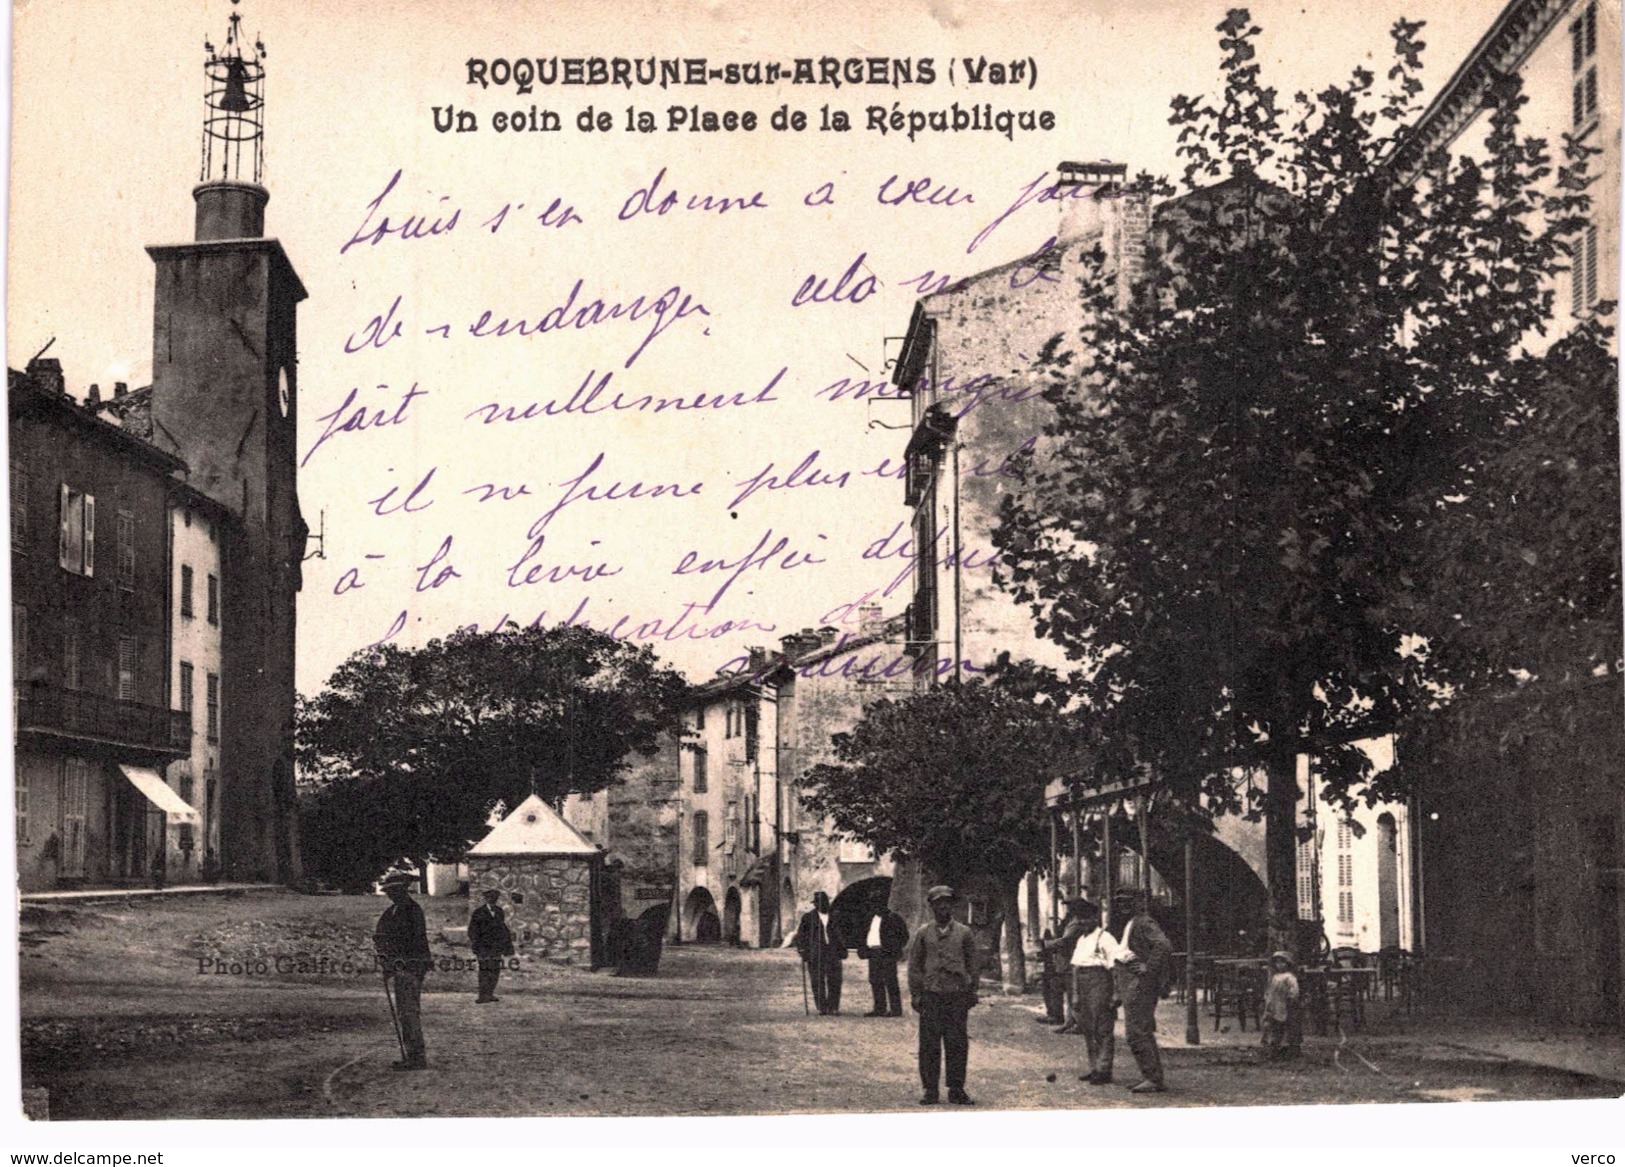 ROQUEBRUNE-sur-ARGENS (Var)
Un coin de la Place de la République
Louis s'en donne à cœur joie
de vendanger, cela ne le
fait nullement maigrir
il ne fume plus et
à la lèvre enflée depuis
l'application de
Photo Galfré, Roquebrune
www.delcampe.net
verco